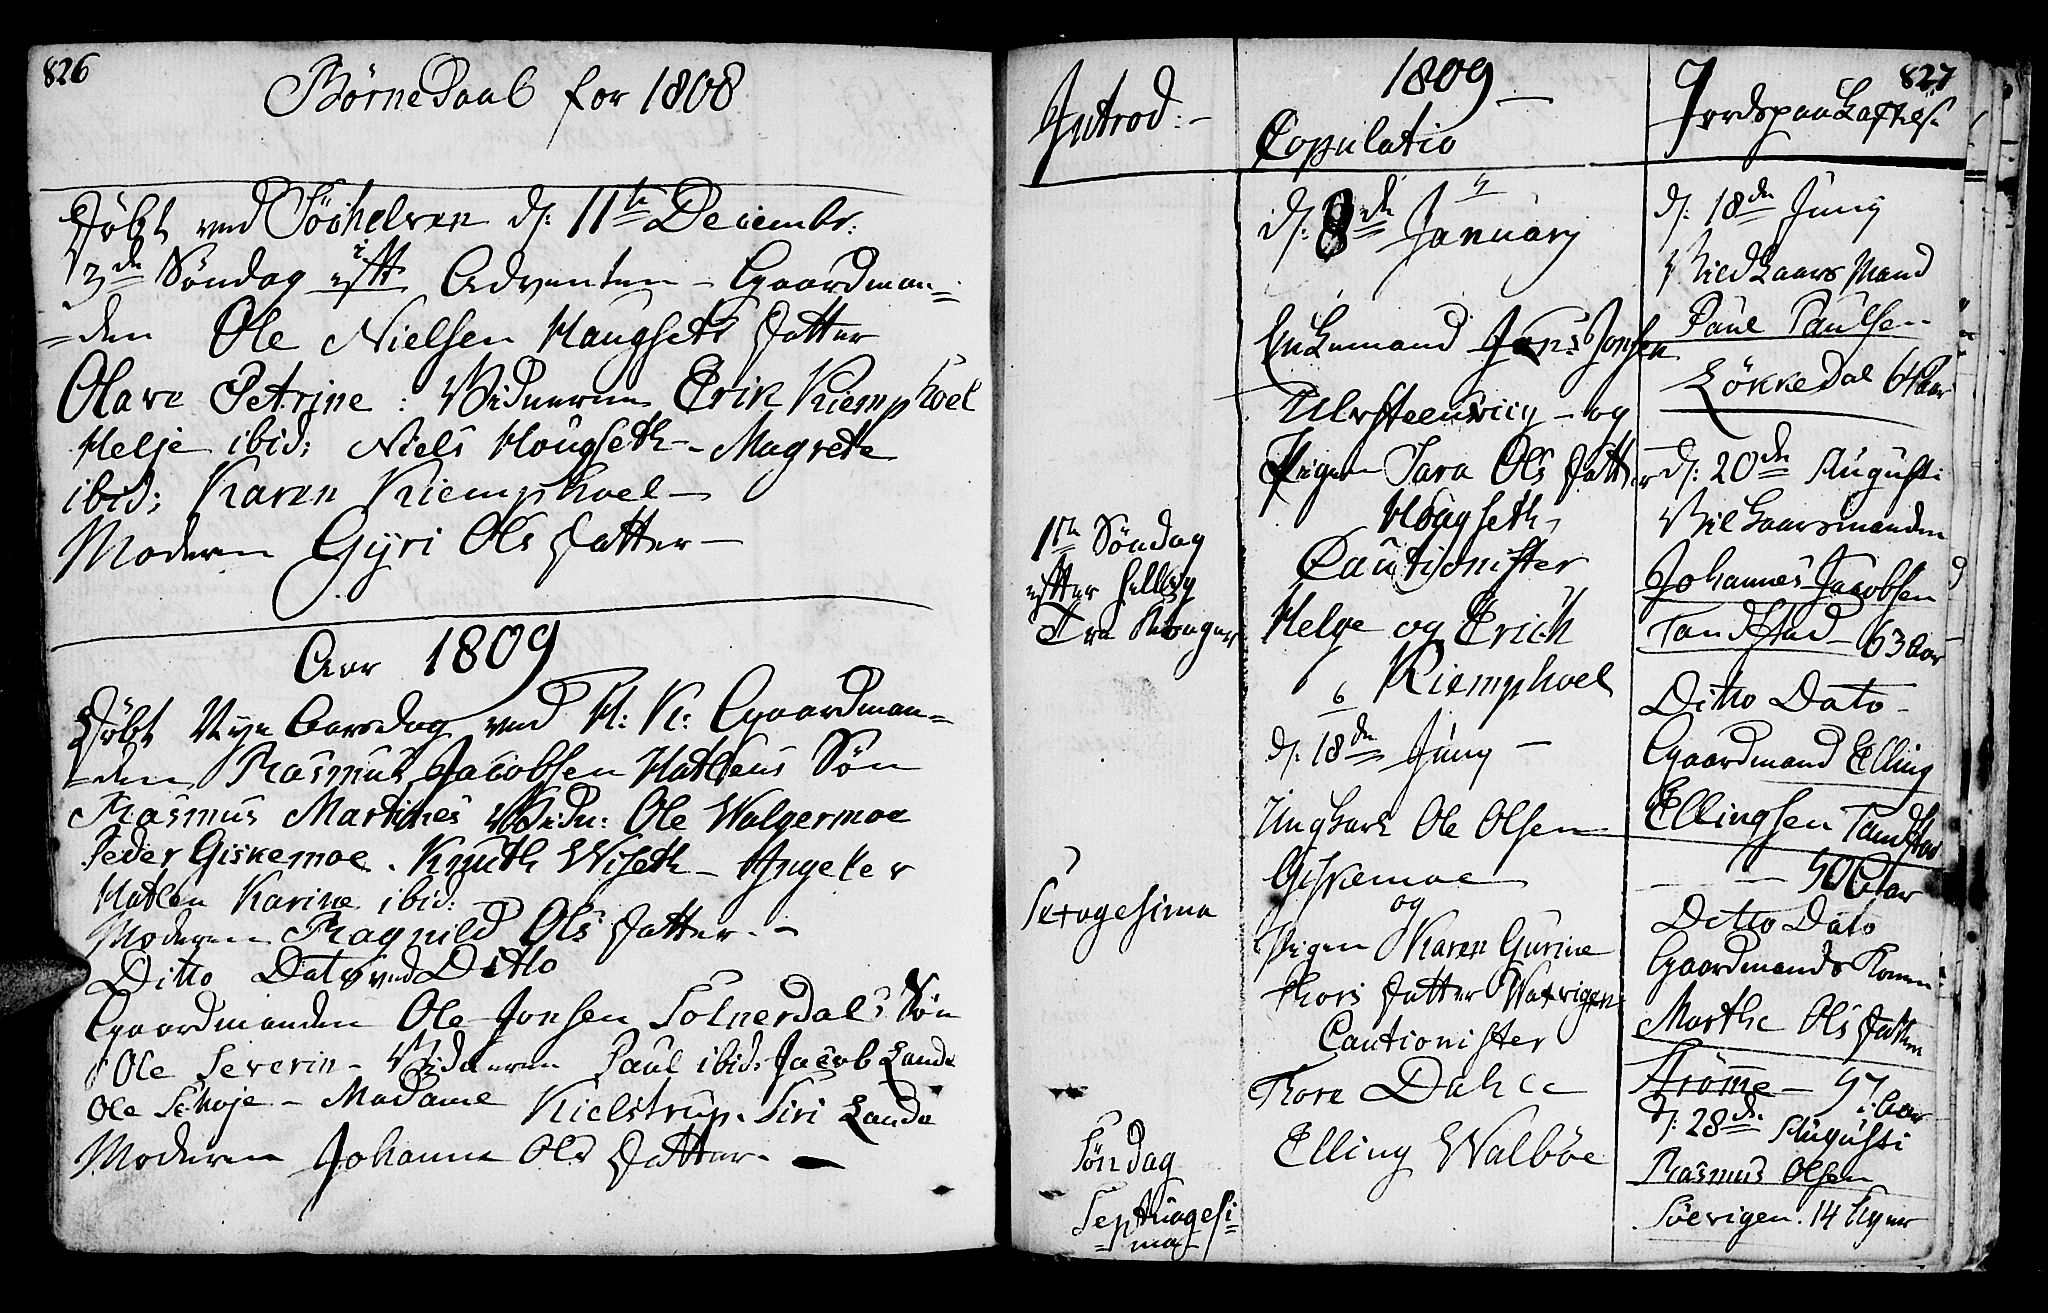 826
BørneDaab for 1808
Döbt ved Söchelven d: 11te Decembr:
3de Söndag i Adventen - Gaardman=
=den Ole Nielsen Haugseth Datter
Olave Petrine: Vidnerne Erik Kiemphoel
Helje ibid: Niels Hougseth - Magrete
ibid: Karen Kiemphoel -
Moderen Gyri Ols Datter -
Aar 1809
Döbt Nye Aarsdag ved H: K: Gaardman=
=den Rasmus Jacobsen Hatlens Sön
Rasmus Martines Vidn: Ole Walgermoe
Peder Giskemoe. Knuth Wiseth -
Hatlen Karine ibid:
Moderen Ragnild Ols Datter. -
Ditto Dato ved Ditto
Gaardmanden Ole Jonsen Solnerdals Sön
Ole Severin - Vidneren Paul ibid: Jacob Lande
Ole Schoje - Madame Kielstrup. Siri Lande
Moderen Johanne Ols Datter. -
827
1809 -
Introd: -
1te Söndag
efter Hellig
Tre Konger
Sexagesima
Söndag
Septuagesi=
=ma -
Copulatio
d: 8de January
Enkemand Jens Jonsen
Ulfsteenviig - og
Pigen Sara Ols Datter
Hougseth,
Cautionister
Helge og Erich
Kiemphoel
6
d: 18de Juny -
Ungkarl Ole Olsen
Giskemoe
og
Pigen Karen Gurine
Thors Datter
Cautionister
Thore Dahle
Elling Walböe
Jordspaakastelse
d: 18de Juny
Vilkaars Mand
Paul Paulsen
Løkkedal 64 Aar
d: 20de Augusti
Vilkaarsmanden
Johannes Jacobsen
Tandstad - 63 Aar
Ditto Dato -
Gaardmand Elling
Ellingsen Tandstad
- - 50 Aar
Ditto Dato
Gaardmands Kone
Marthe Ols Datter
57 Aar
d: 28de Augusti
Rasmus Olsen
Söevigen. 14 Uger